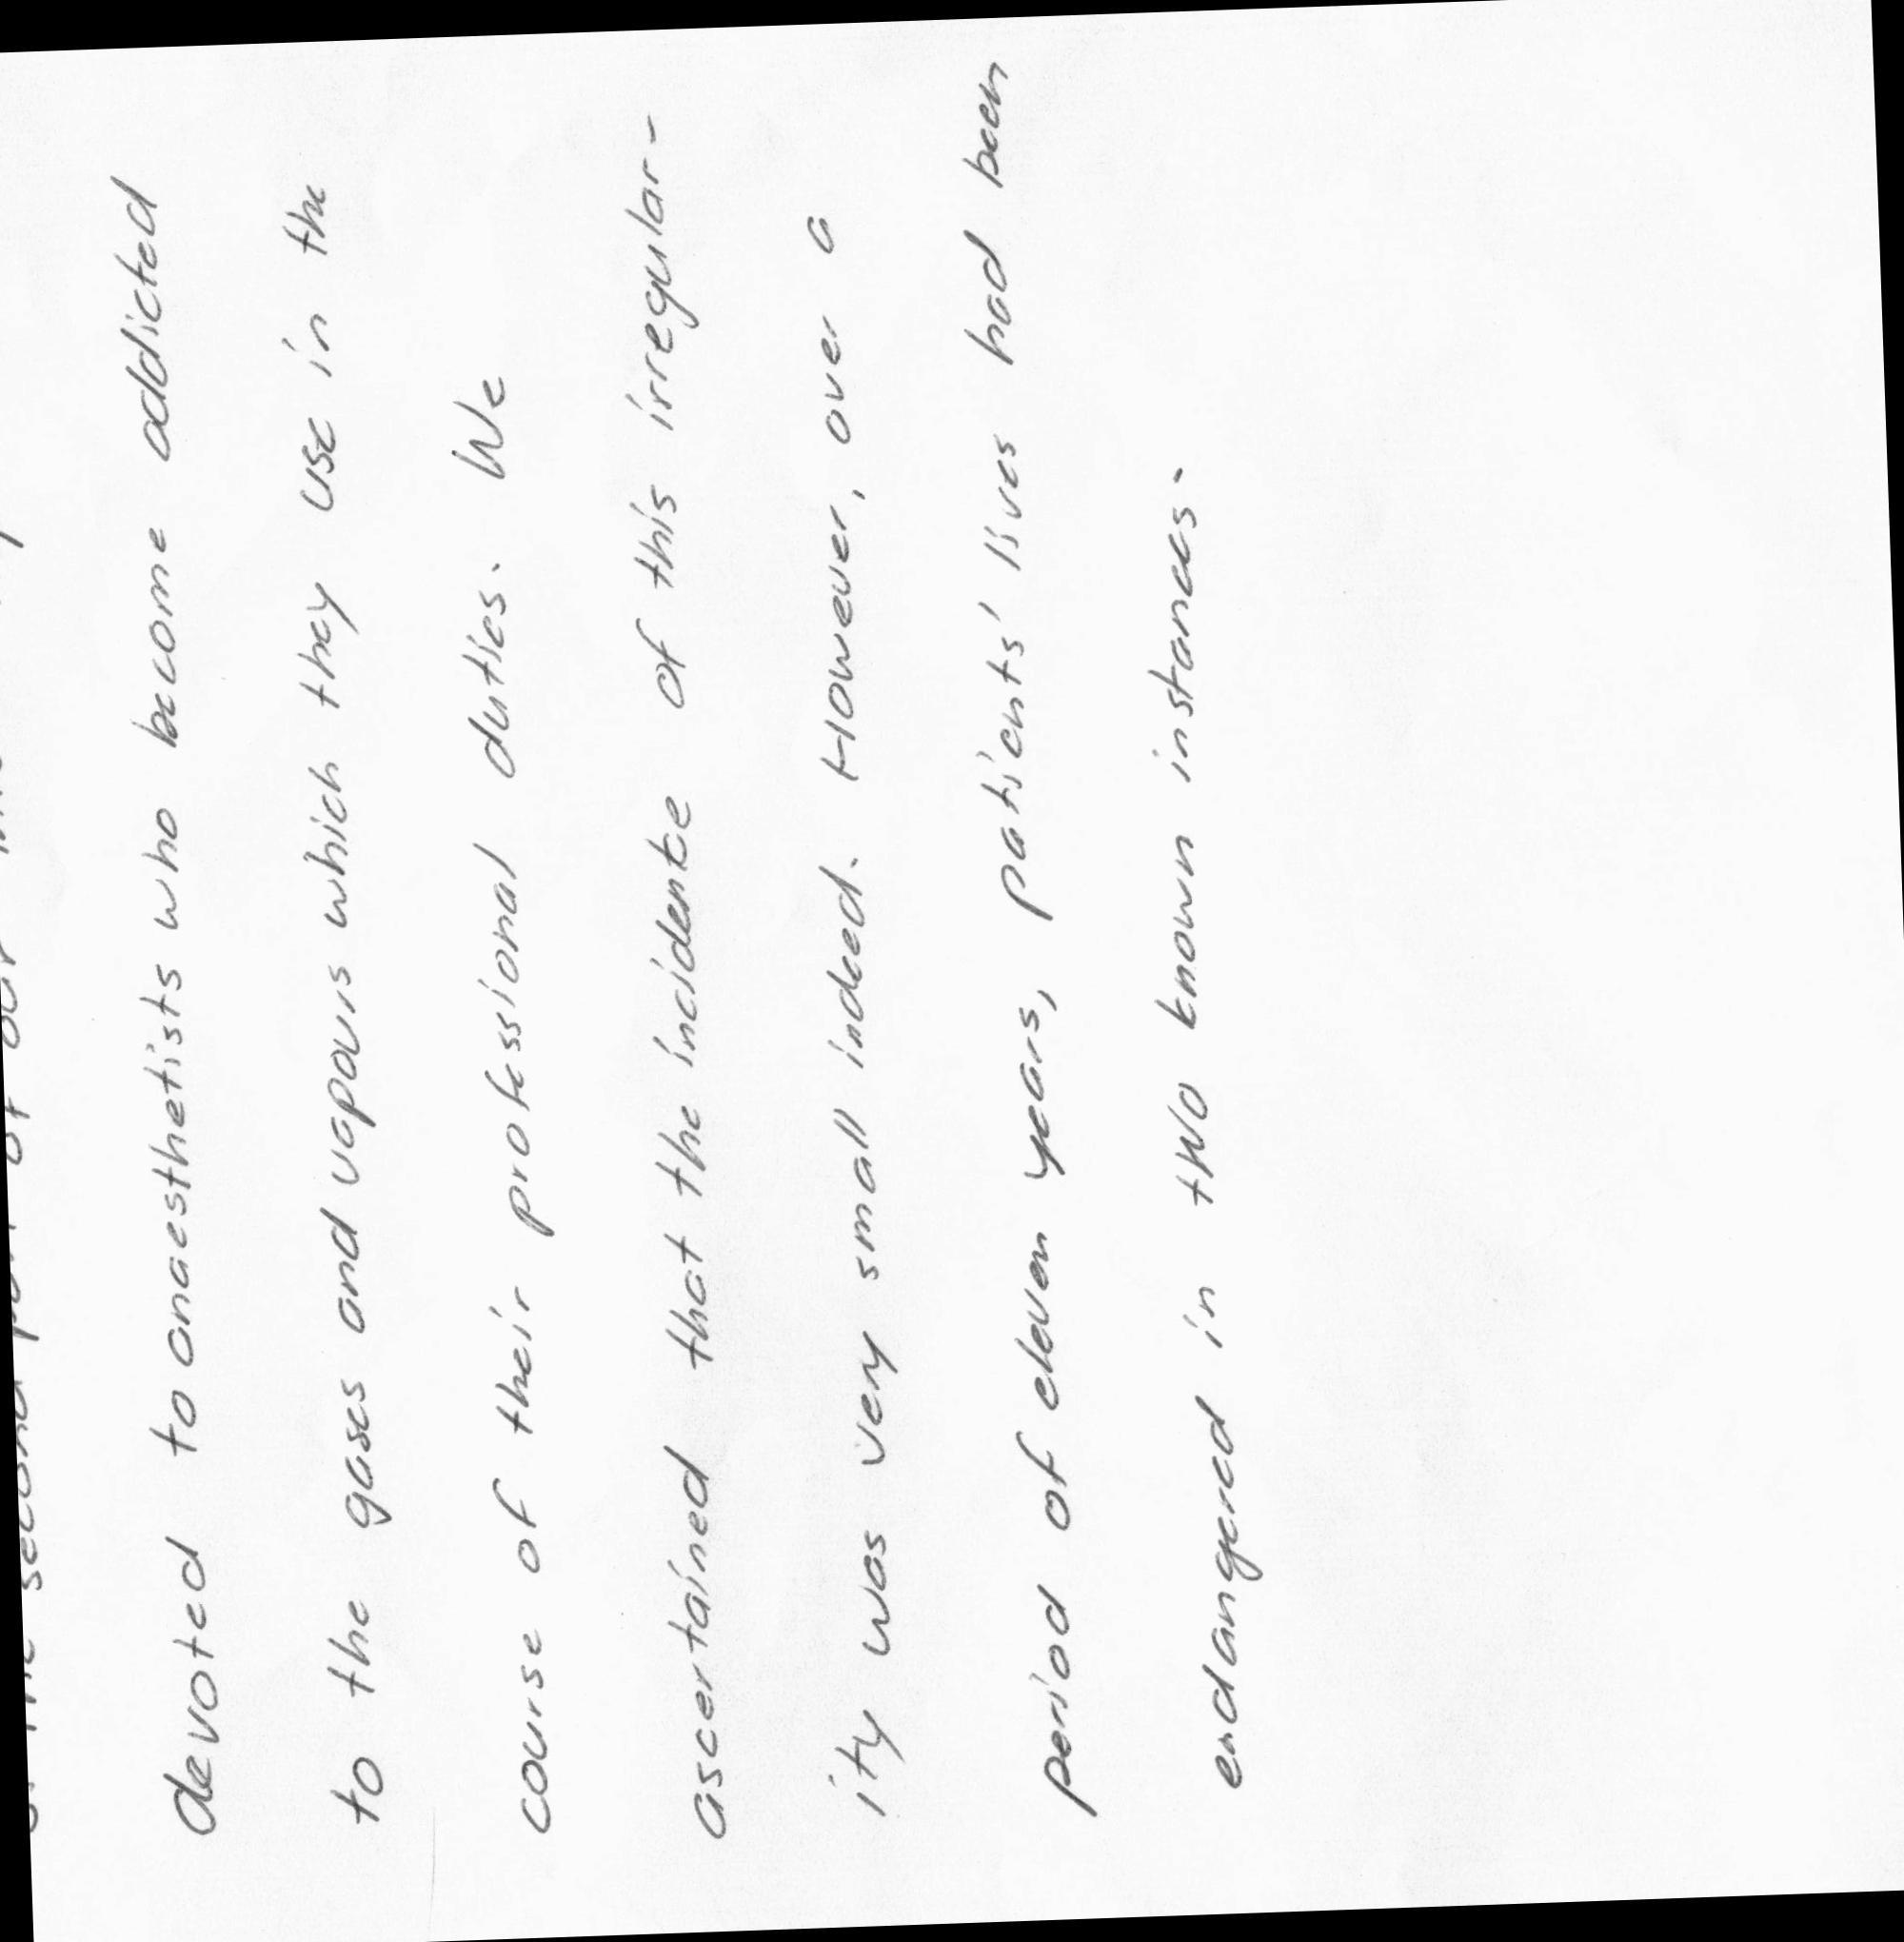 the second part of our
devoted to anaesthetists who become addicted
to the gases and vapours which they use in the
course of their professional duties. We
ascertained that the incidence of this irregular-
ity was very small indeed. However, over a
period of eleven years, patients' lives had been
endangered in two known instances.